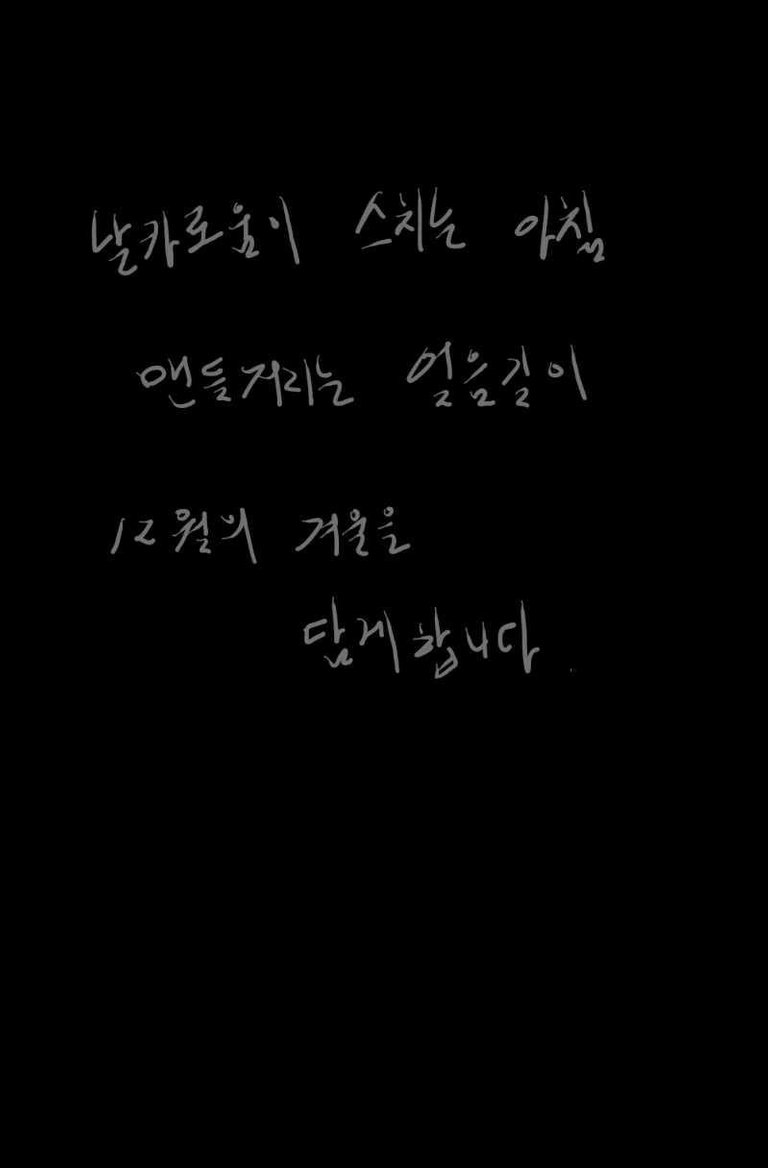 날카로움이 스치는 아침
맨들거리는 얼음길이
12월의 겨울을
담게합니다.